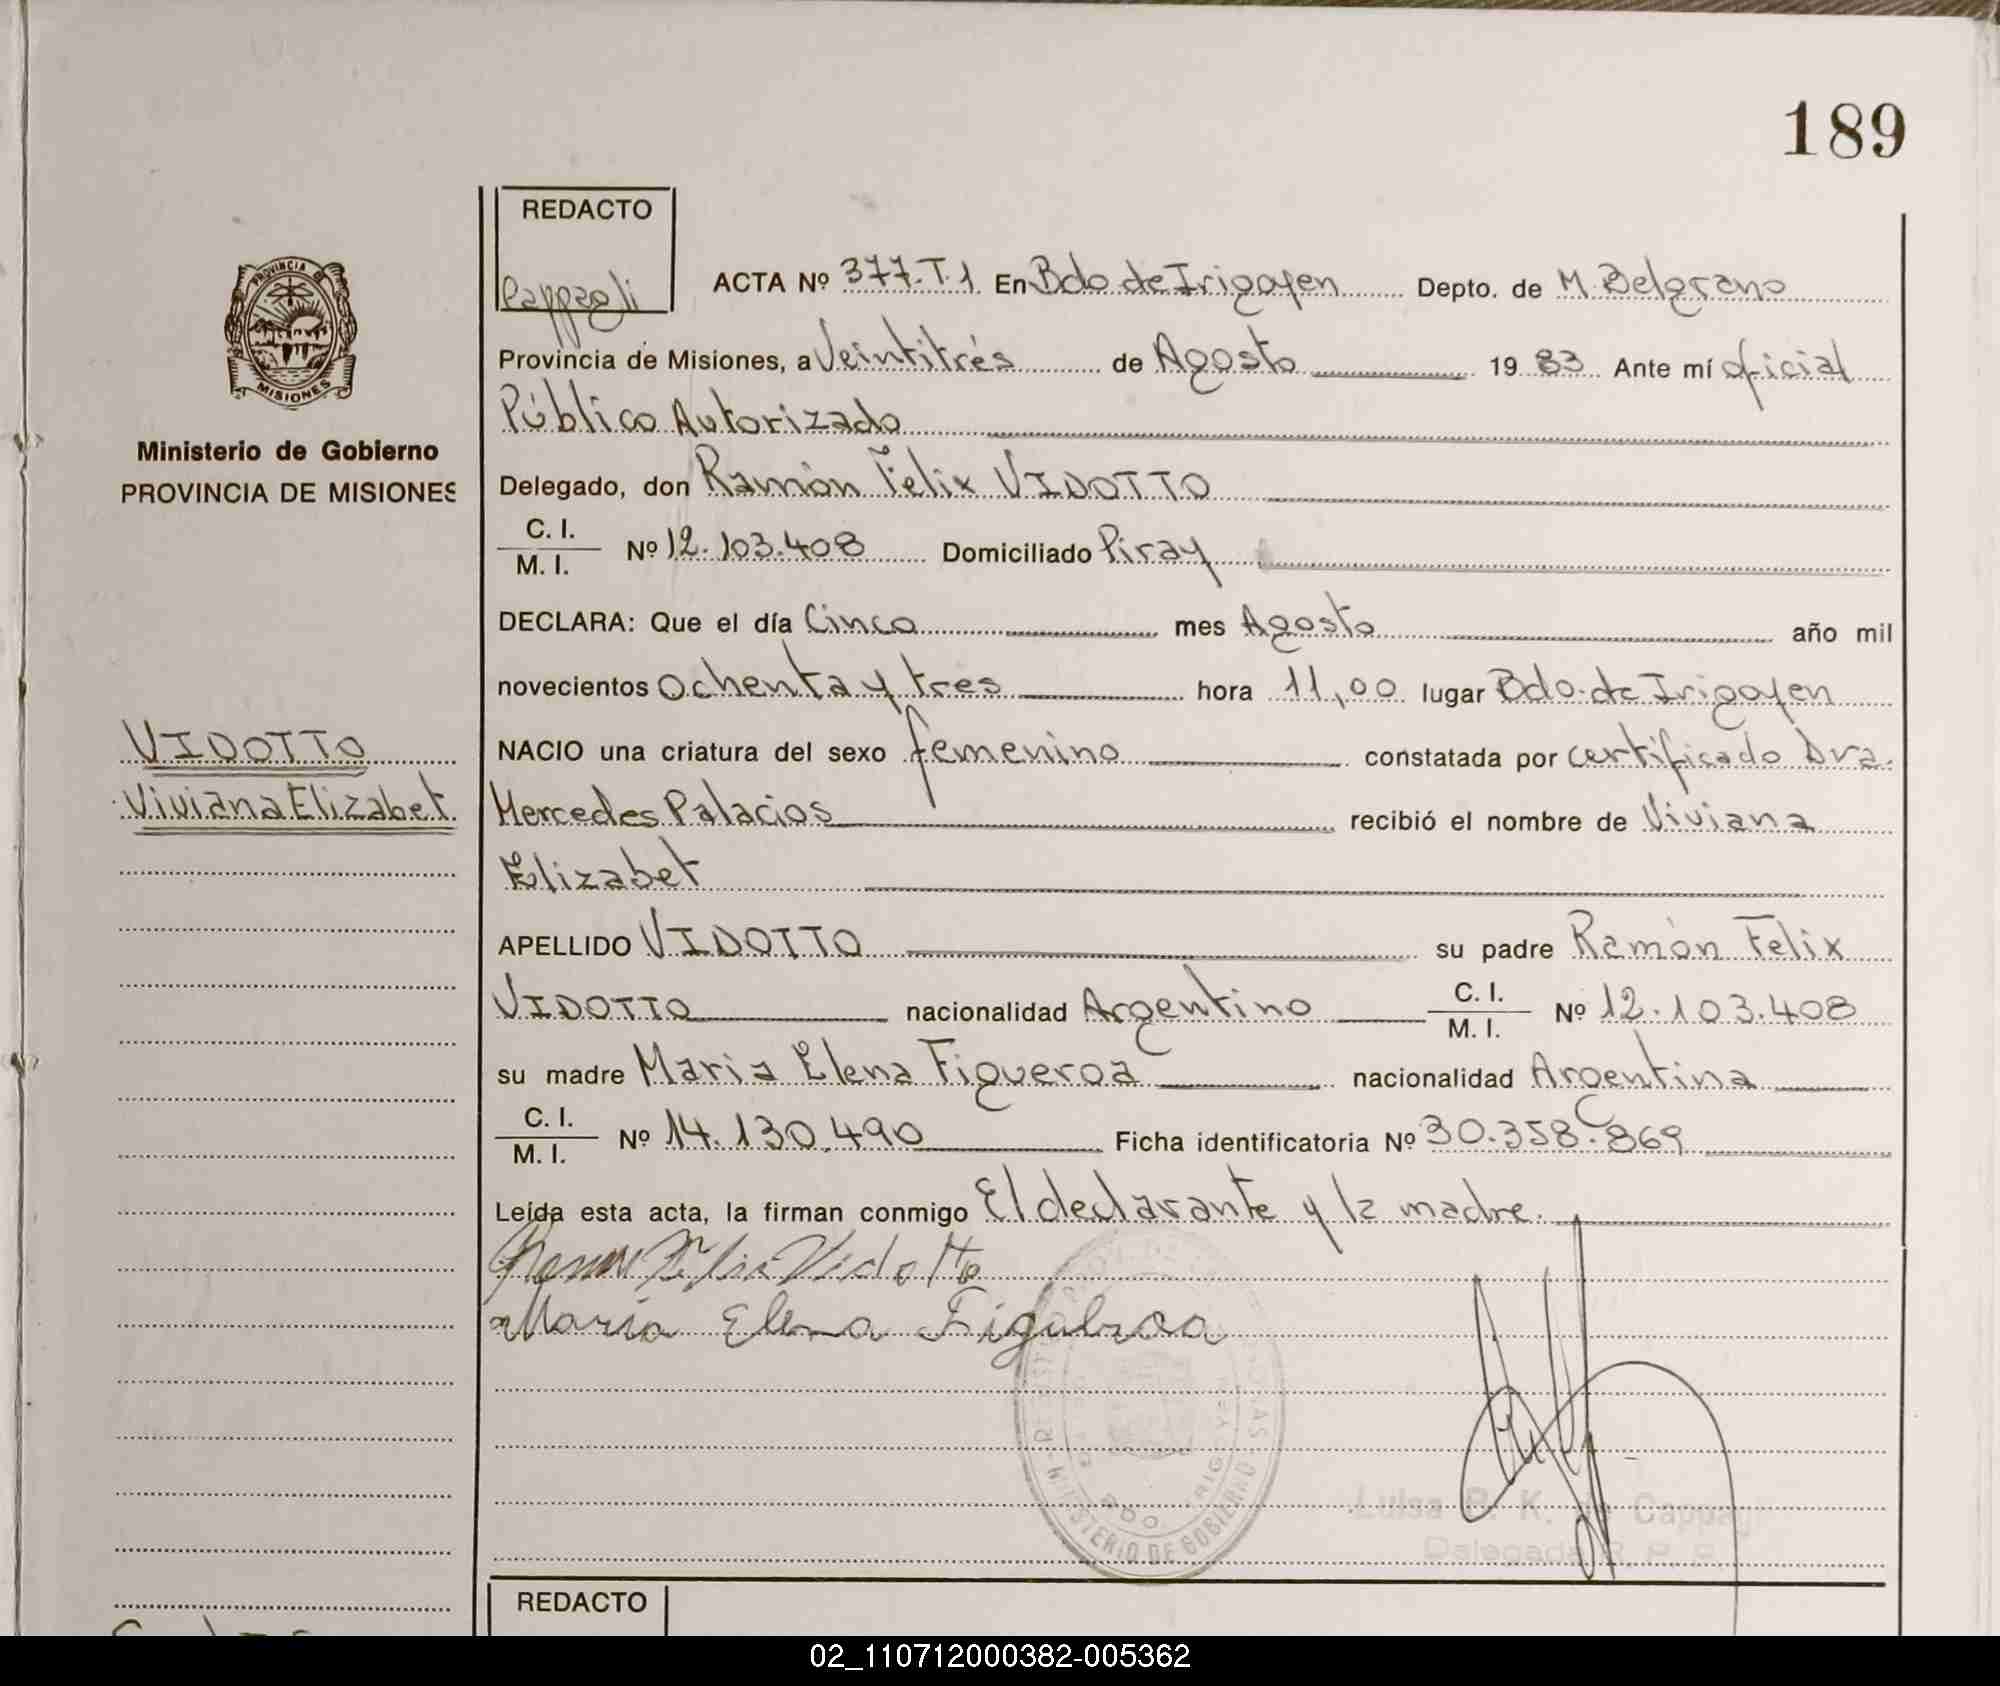 189
REDACTO
Cappagli
ACTA Nº 377.T.1 En Bdo de Irigoyen Depto. de M. Belgrano
PROVINCIA DE MISIONES
Provincia de Misiones, a Veintitrés de Agosto 1983 Ante mí oficial
Público Autorizado
Ministerio de Gobierno
PROVINCIA DE MISIONES
Delegado, don Ramón Felix VIDOTTO
C. I.
M. I. Nº 12.103.408 Domiciliado Piray
DECLARA: Que el día Cinco mes Agosto año mil
novecientos Ochenta y tres hora 11,00 lugar Bdo. de Irigoyen
VIDOTTO
Viviana Elizabet
NACIO una criatura del sexo femenino constatada por certificado Dra.
Mercedes Palacios recibió el nombre de Viviana
Elizabet
APELLIDO VIDOTTO su padre Ramón Felix
VIDOTTO nacionalidad Argentino C. I. M. I. Nº 12.103.408
su madre Maria Elena Figueroa nacionalidad Argentina
C. I.
M. I. Nº 14.130.490 Ficha identificatoria Nº 30.358.869
Leída esta acta, la firman conmigo El declarante y la madre.
Ramon Felix Vidotto
Maria Elena Figueroa
MINISTERIO DE GOBIERNO
BDO. IRIGOYEN
Luisa K. de Cappagli
Delegada R. P. P.
REDACTO
02_110712000382-005362